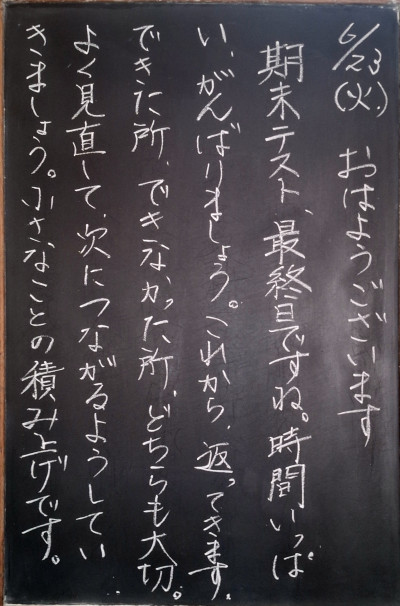 6/23(火) おはようございます
期末テスト、最終日ですね。時間いっぱ
い、がんばりましょう。これから、返ってきます。
できた所、できなかった所、どちらも大切。
よく見直して、次につながるようしてい
きましょう。小さなことの積み上げです。